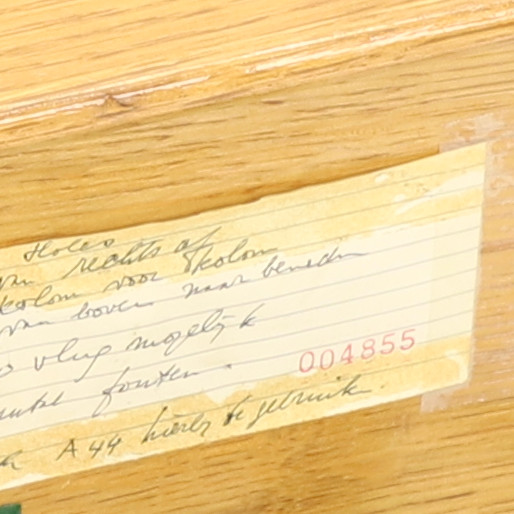 Holes
van rechts af
kolom voor kolom
van boven naar beneden
vlug mogelijk
fouten.
004855
A44 hierbij te gebruik.